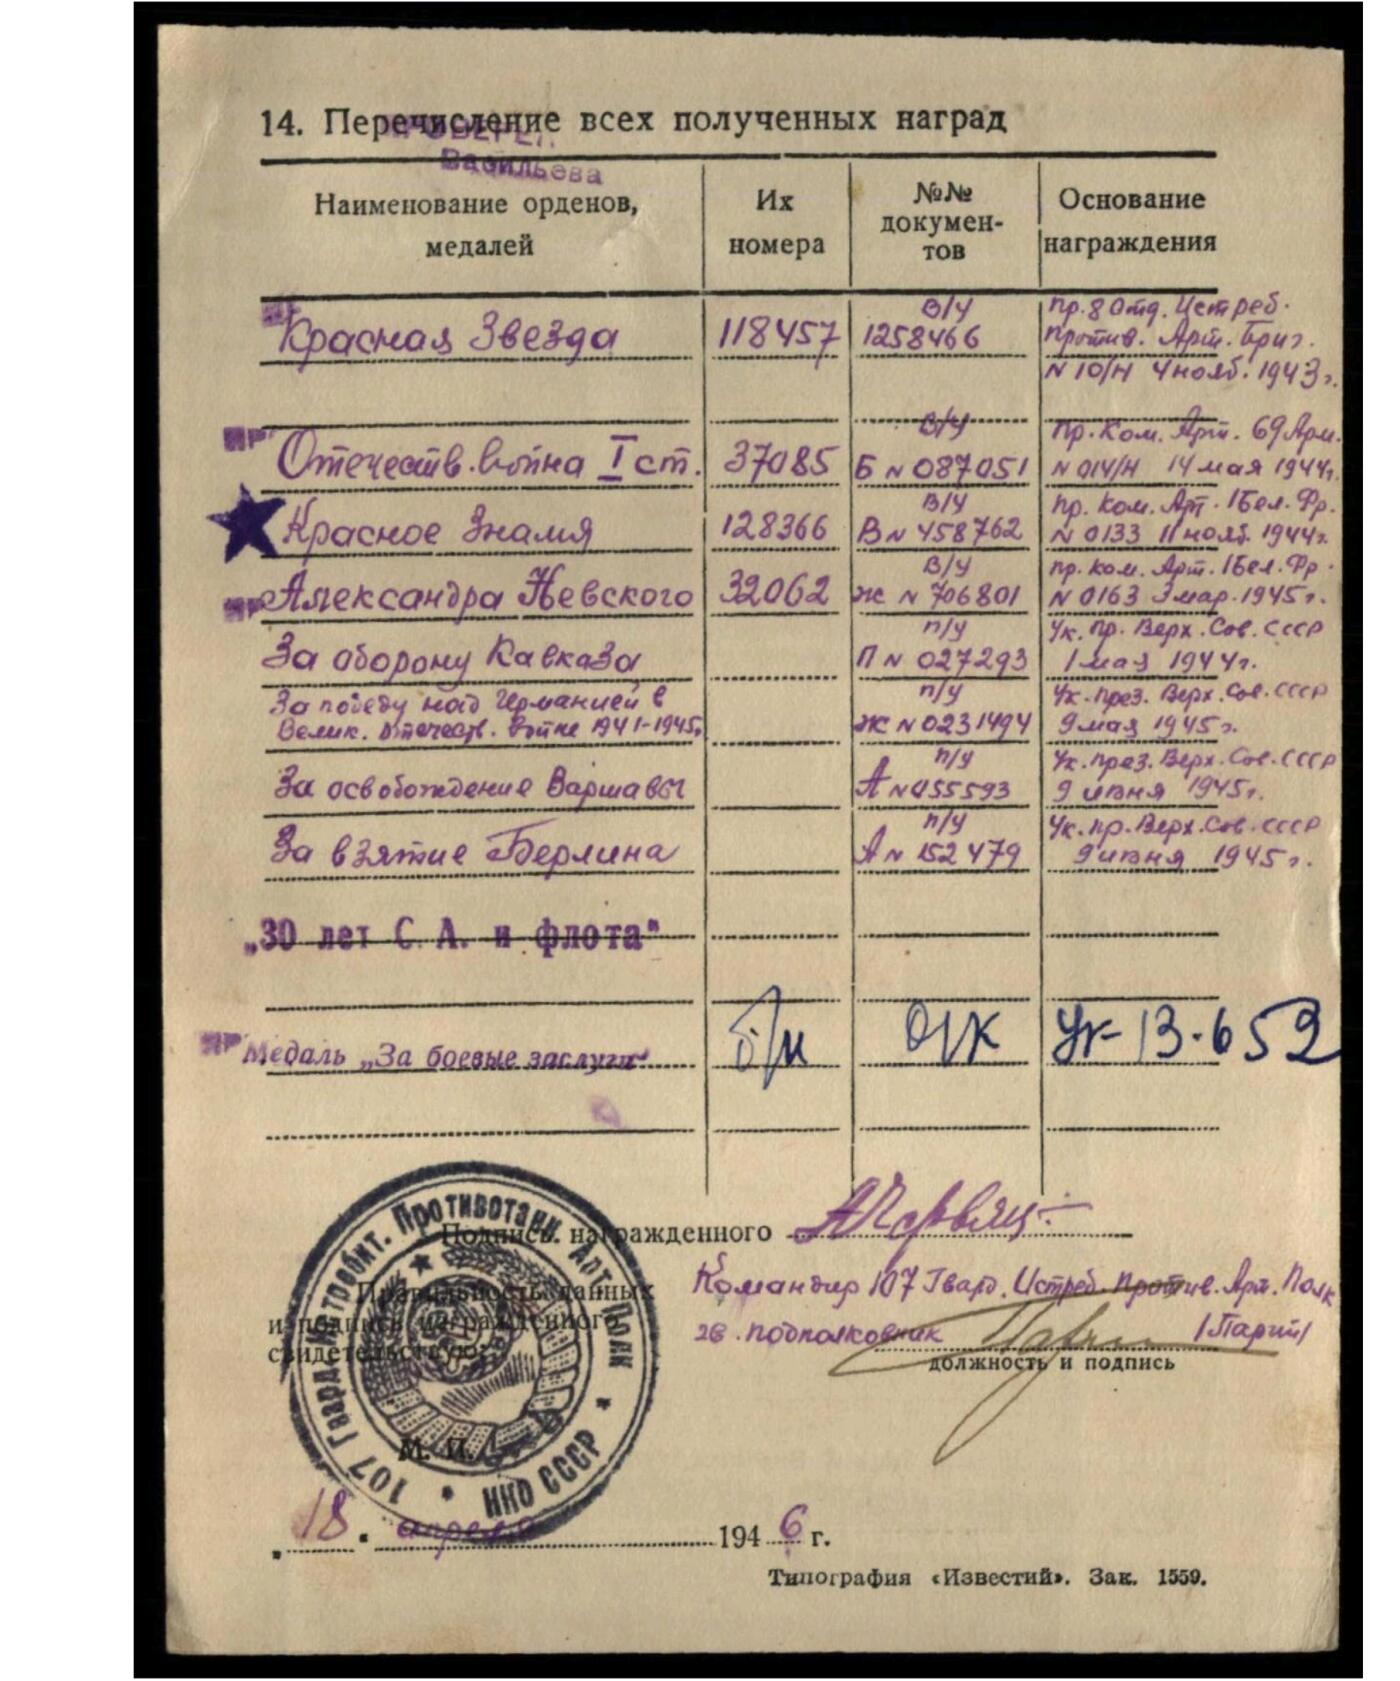 14. Перечисление всех полученных наград
ПРОВЕРЕН.
Васильева
Наименование орденов, медалей
Их номера
№№ докумен-тов
Основание награждения
Красная Звезда 118457 В/у 1258466 Пр. 8 Отд. Истреб.
Против. Арт. Бриг.
N 10/н 4 нояб. 1943 г.
Отечеств. война I ст. 37085 В/у Б N 087051 Пр. Ком. Арт. 69 Арм.
N 014/н 14 мая 1944г.
Красное Знамя 128366 В/у В N 458762 Пр. Ком. Арт. 1 Бел. Фр.
N 0133 11 нояб. 1944г.
Александра Невского 32062 В/у Ж N 706801 Пр. Ком. Арт. 1 Бел. Фр.
N 0163 3 мар. 1945г.
За оборону Кавказа п/у П N 027293 Ук. Пр. Верх. Сов. СССР
1 мая 1944г.
За победу над Германией в
Велик. Отечеств. войне 1941-1945г. п/у Ж N 0231494 Ук. през. Верх. Сов. СССР
9 мая 1945г.
За освобождение Варшавы п/у А N 055593 Ук. през. Верх. Сов. СССР
9 июня 1945г.
За взятие Берлина п/у А N 152479 Ук. Пр. Верх. Сов. СССР
9 июня 1945г.
„30 лет С. А. и флота"
Медаль „За боевые заслуги" б/н О/К Ук-13-652
Подпись награжденного
Правильность данных
и подпись награжденного
свидетельствую:
Командир 107 Гвард. Истреб. Против. Арт. Полк
гв. подполковник
должность и подпись
М. П.
107 Гвард. Истребит. Противотанк. Арт. Полк
НКО СССР
„18" апреля 1946 г.
Типография «Известий». Зак. 1559.